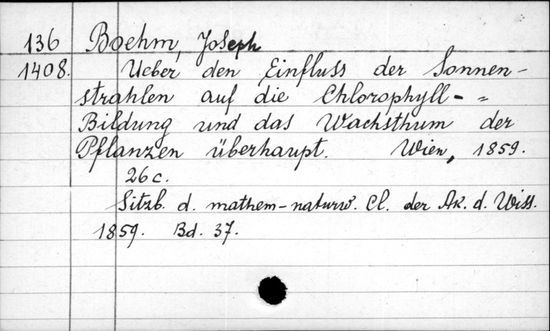 136 Boehm, Joseph
1408. Ueber den Einfluss der Sonnen-
strahlen auf die Chlorophyll- "
Bildung und das Wachsthum der
Pflanzen überhaupt. Wien, 1859.
26 c.
Sitzb. d. mathem-naturw. Cl. der Ak. d. Wiss.
1859. Bd. 37.